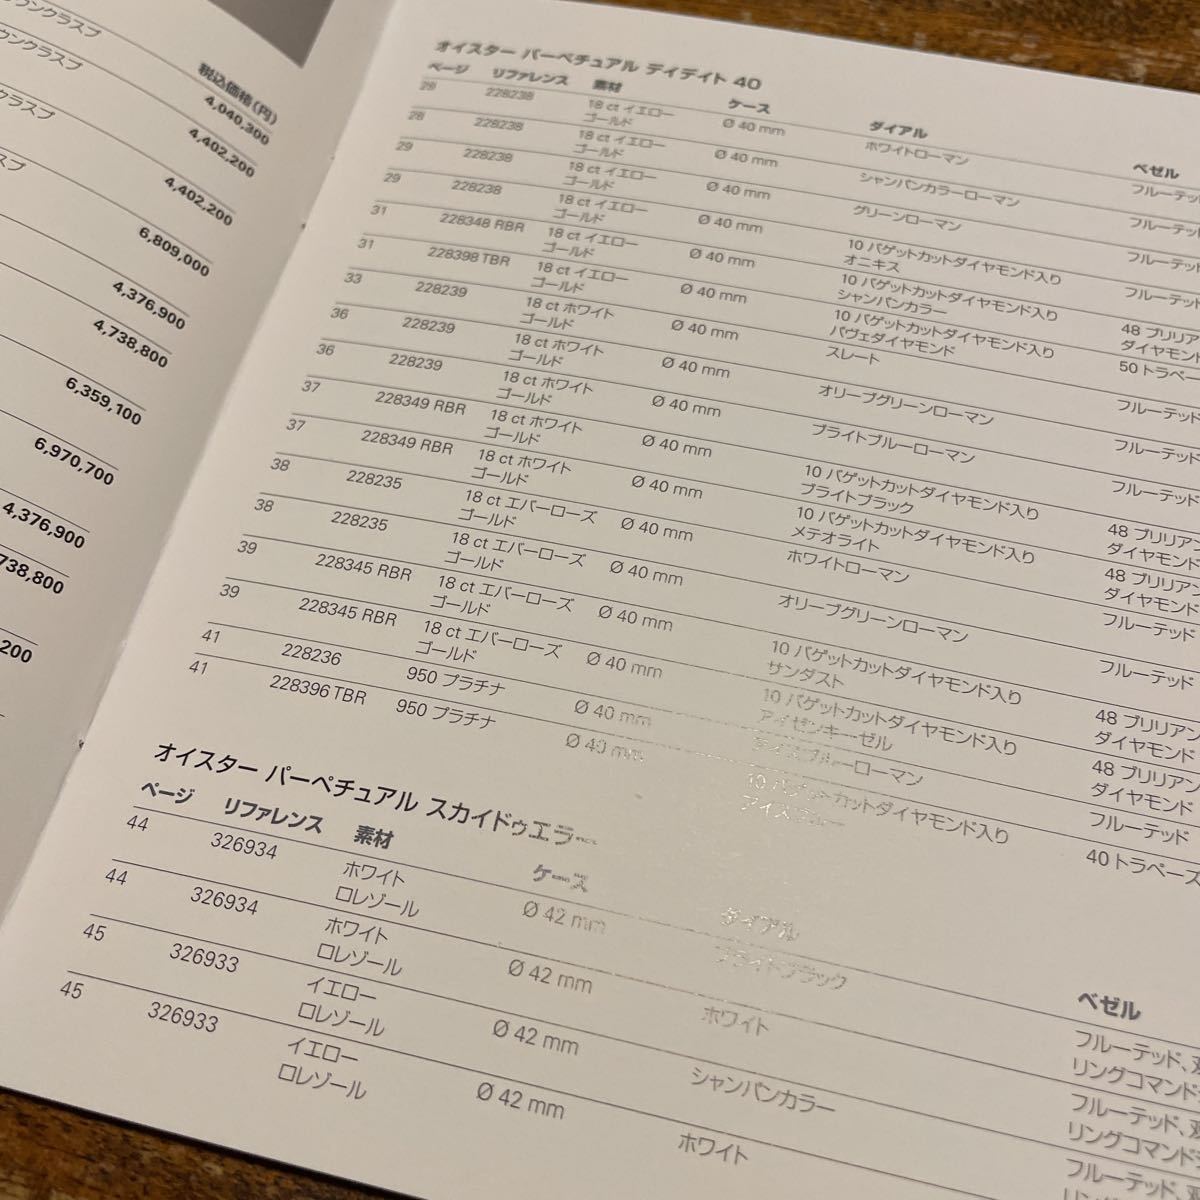 ウンクラスプ
ウンクラスプ
クラスプ
スプ
税込価格(円)
4,040,300
4,402,200
4,402,200
6,809,000
4,376,900
4,738,800
6,359,100
6,970,700
4,376,900
738,800
200
オイスター パーペチュアル デイデイト 40
ページ リファレンス 素材 ケース ダイアル ベゼル
28 228238 18 ct イエローゴールド Ø 40 mm ホワイトローマン フルーテッド
28 228238 18 ct イエローゴールド Ø 40 mm シャンパンカラーローマン フルーテッド
29 228238 18 ct イエローゴールド Ø 40 mm グリーンローマン フルーテッド
29 228238 18 ct イエローゴールド Ø 40 mm 10 バゲットカットダイヤモンド入りオニキス フルーテッド
31 228348 RBR 18 ct イエローゴールド Ø 40 mm 10 バゲットカットダイヤモンド入りシャンパンカラー 48 ブリリアン ダイヤモンド
31 228398 TBR 18 ct イエローゴールド Ø 40 mm 10 バゲットカットダイヤモンド入りパヴェダイヤモンド 50 トラペー
33 228239 18 ct ホワイトゴールド Ø 40 mm スレート フルーテッド
36 228239 18 ct ホワイトゴールド Ø 40 mm オリーブグリーンローマン フルーテッド
36 228239 18 ct ホワイトゴールド Ø 40 mm ブライトブルーローマン フルーテッド
37 228349 RBR 18 ct ホワイトゴールド Ø 40 mm 10 バゲットカットダイヤモンド入りブライトブラック 48 ブリリアン ダイヤモンド
37 228349 RBR 18 ct ホワイトゴールド Ø 40 mm 10 バゲットカットダイヤモンド入りメテオライト 48 ブリリアン ダイヤモンド
38 228235 18 ct エバーローズゴールド Ø 40 mm ホワイトローマン フルーテッド
38 228235 18 ct エバーローズゴールド Ø 40 mm オリーブグリーンローマン フルーテッド
39 228345 RBR 18 ct エバーローズゴールド Ø 40 mm 10 バゲットカットダイヤモンド入りサンダスト 48 ブリリアン ダイヤモンド
39 228345 RBR 18 ct エバーローズゴールド Ø 40 mm 10 バゲットカットダイヤモンド入りアイゼンキーゼル 48 ブリリアン ダイヤモンド
41 228236 950 プラチナ Ø 40 mm アイスブルーローマン フルーテッド
41 228396 TBR 950 プラチナ Ø 40 mm 10 バゲットカットダイヤモンド入りアイスブルー 40 トラペーズ
オイスター パーペチュアル スカイドゥエラー
ページ リファレンス 素材 ケース ダイアル ベゼル
44 326934 ホワイトロレゾール Ø 42 mm ブライトブラック フルーテッド、双 リングコマンド
44 326934 ホワイトロレゾール Ø 42 mm ホワイト フルーテッド、双 リングコマンド
45 326933 イエローロレゾール Ø 42 mm シャンパンカラー フルーテッド、双
45 326933 イエローロレゾール Ø 42 mm ホワイト